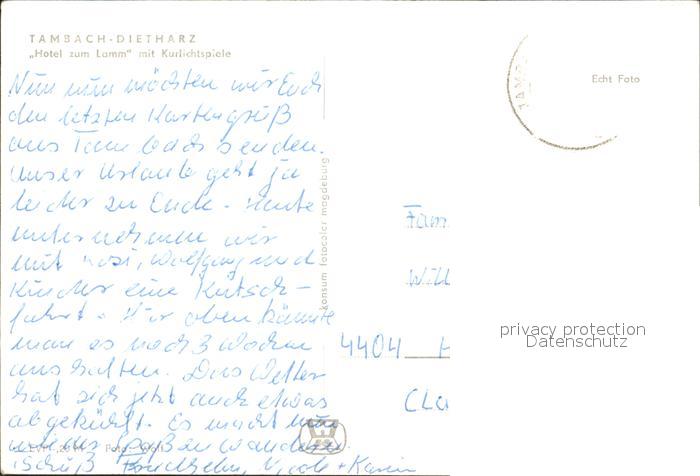 TAMBACH-DIETHARZ
„Hotel zum Lamm" mit Kurlichtspiele
Nun nun möchten wir Euch
den letzten Kartengruß
aus Tambach senden.
Unser Urlaub geht ja
leider zu Ende. Heute
unternehmen wir
mit Rosi, Wolfgang und
Kinder eine Kutsch-
fahrt. Hier oben könnte
man es noch 3 Wochen
aushalten. Das Wetter
hat sich jetzt auch etwas
abgekühlt. Es macht nun
wieder Spaß zu wandern.
Tschüß Nicole + Karin
konsum fotocolor magdeburg
Echt Foto
TAMB
Fam
Will
4404 H
Cla
privacy protection
Datenschutz